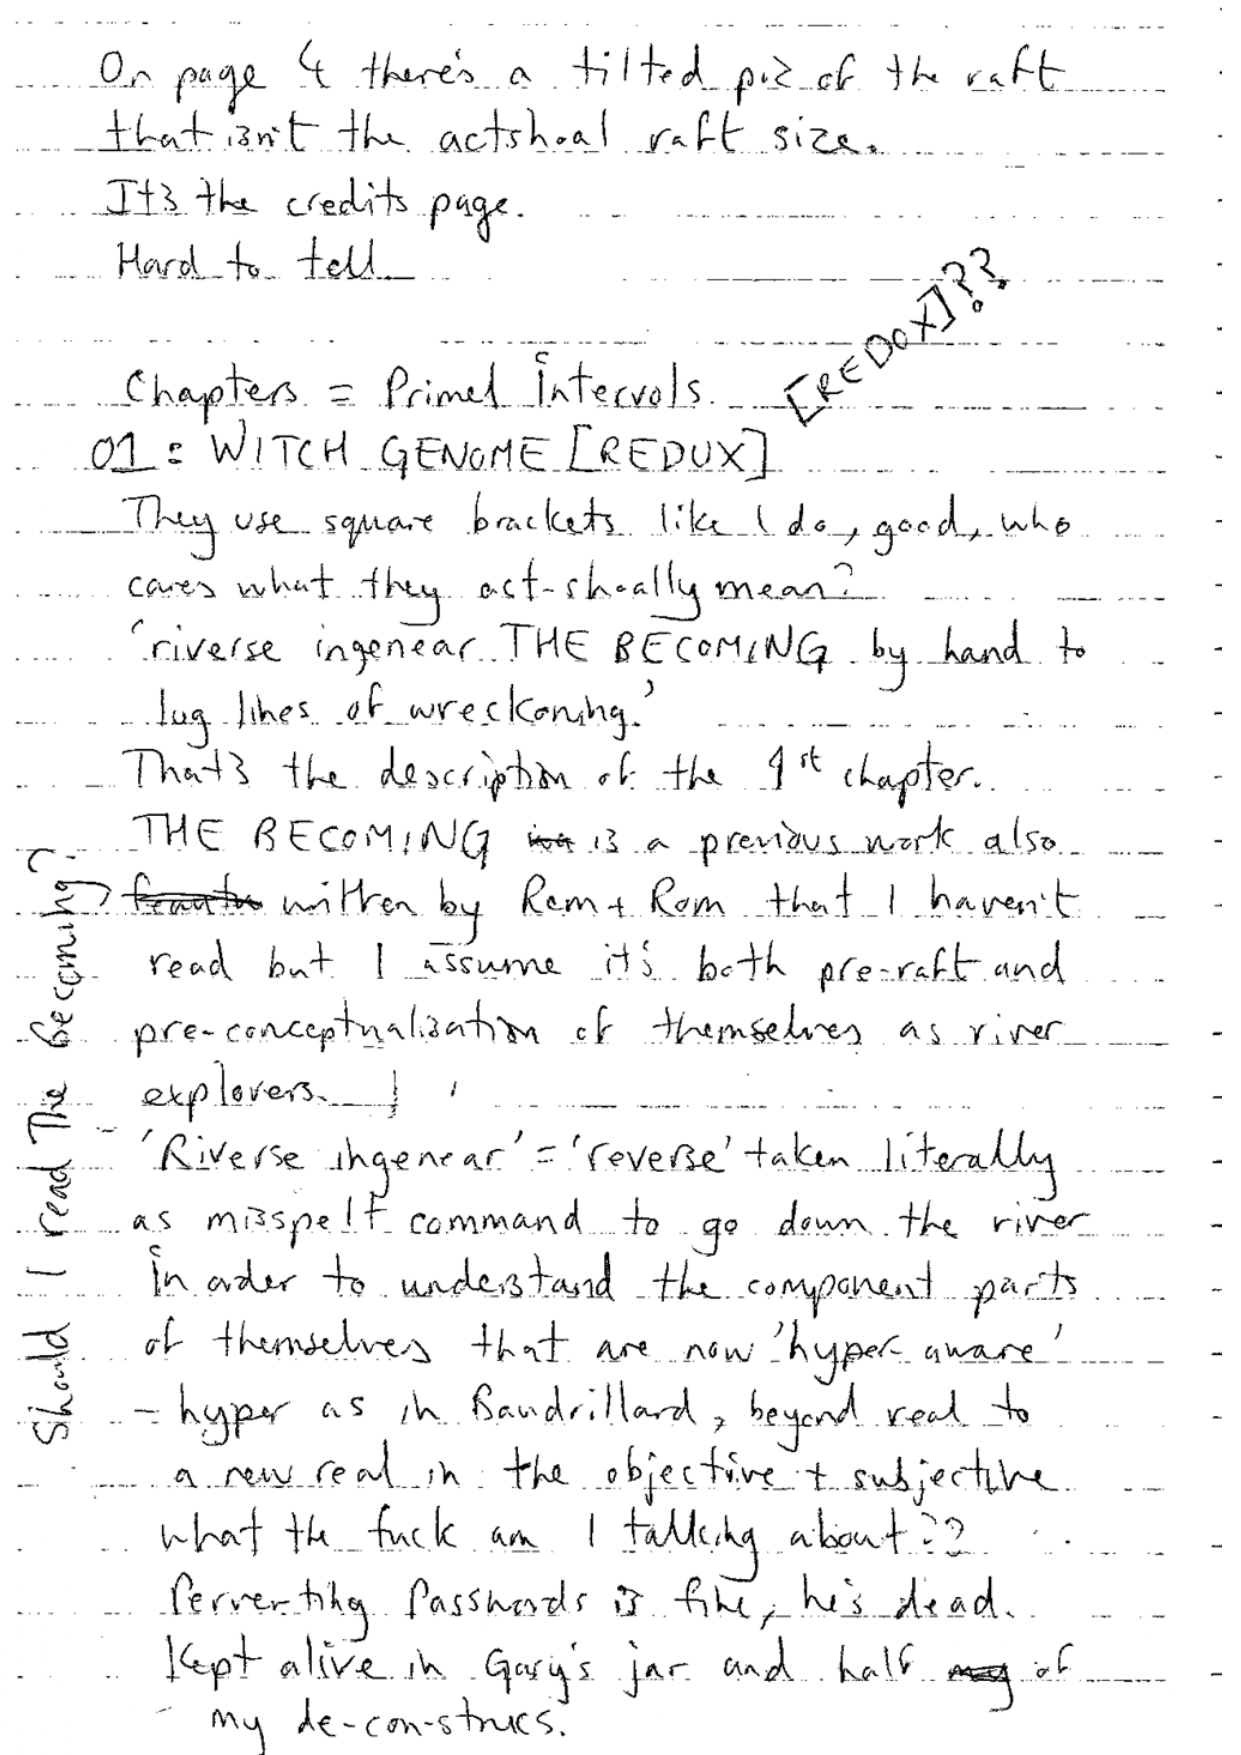 On page 4 there's a tilted pic of the raft
that isn't the actshoal raft size.
Its the credits page.
Hard to tell
[REDOX]??
Chapters = Primed Intervols.
01 : WITCH GENOME [REDUX]
They use square brackets like I do, good, who
cares what they act-shoally mean?
'riverse ingenear THE BECOMING by hand to
lug lines of wreckoning.'
Thats the description of the 1st chapter.
THE BECOMING is a previous work also
written by Rem + Rom that I haven't
read but I assume it's both pre-raft and
pre-conceptualisation of themselves as river
explorers.
Should I read The Becoming?
'Riverse ingenear' = 'reverse' taken literally
as misspelt command to go down the river
in order to understand the component parts
of themselves that are now 'hyper-aware'
- hyper as in Baudrillard, beyond real to
a new real in the objective + subjective
what the fuck am I talking about??
Perverting Passwords is fine, he's dead.
Kept alive in Gary's jar and half of
my de-con-strucs.